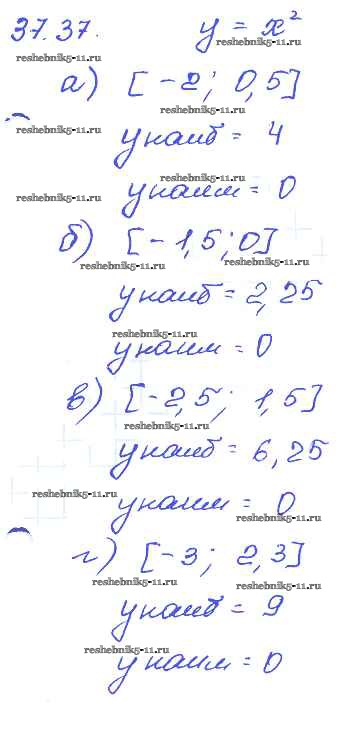 37.37. y = x²
reshebnik5-11.ru
reshebnik5-11.ru
а) [-2; 0,5]
reshebnik5-11.ru
reshebnik5-11.ru
yнаиб = 4
reshebnik5-11.ru
yнаим = 0
reshebnik5-11.ru
б) [-1,5; 0]
reshebnik5-11.ru reshebnik5-11.ru
yнаиб = 2,25
reshebnik5-11.ru
yнаим = 0
в) [-2,5; 1,5]
reshebnik5-11.ru
yнаиб = 6,25
reshebnik5-11.ru
yнаим = 0
reshebnik5-11.ru
г) [-3; 2,3]
reshebnik5-11.ru reshebnik5-11.ru
yнаиб = 9
reshebnik5-11.ru
yнаим = 0